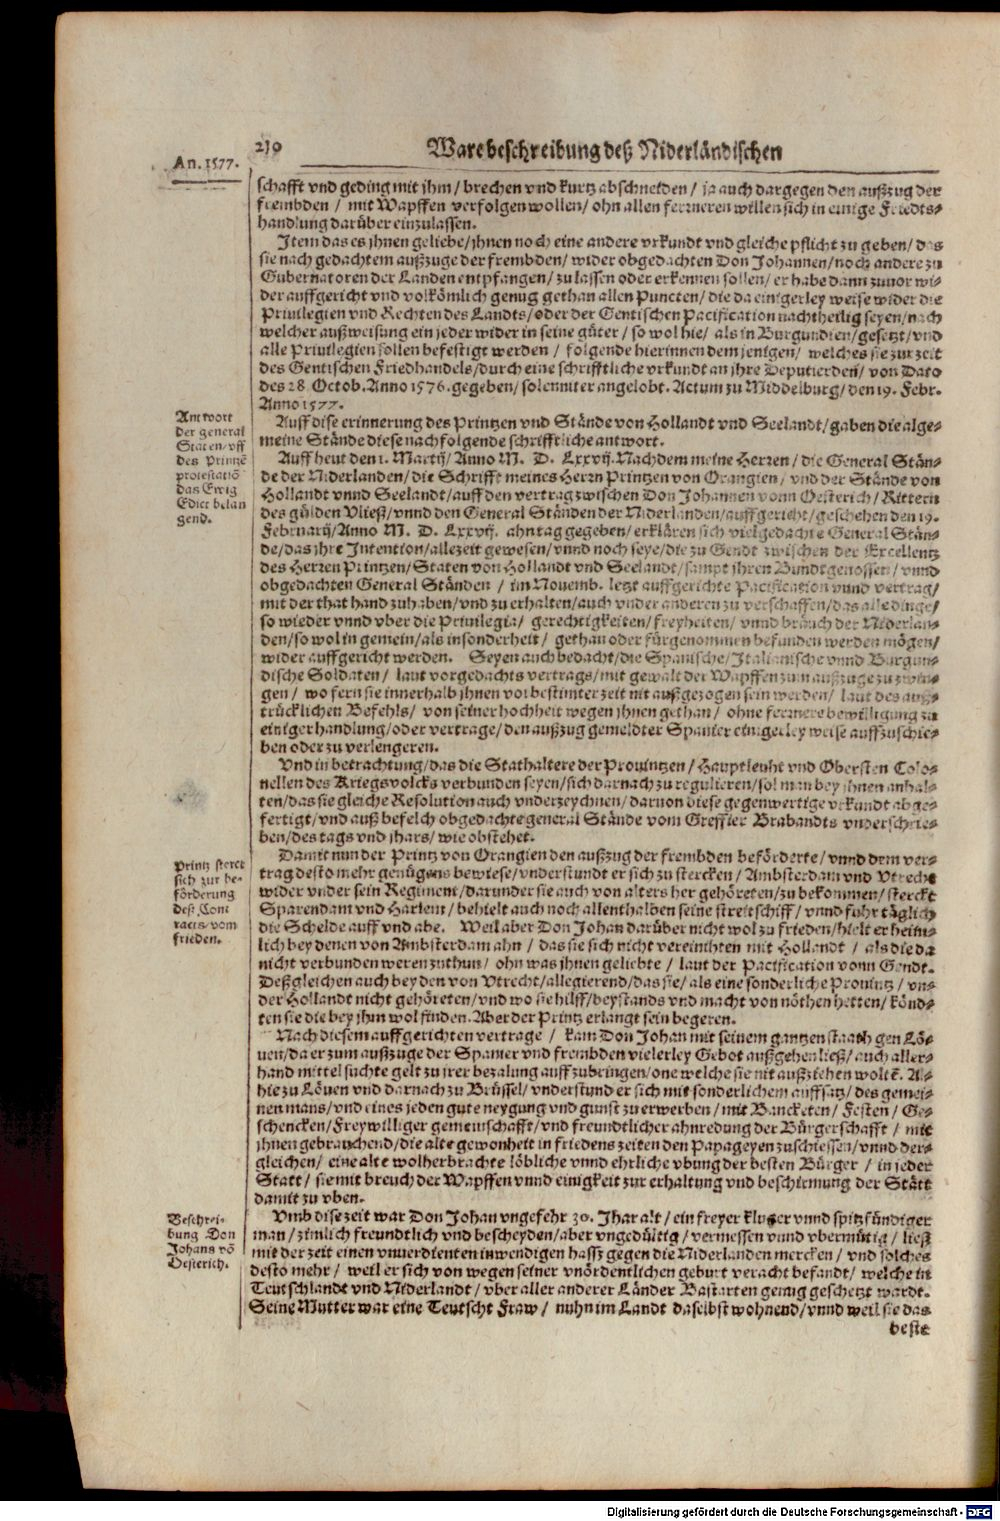 210
Ware beschreibung deß Niderländischen
An. 1577.
schafft vnd geding mit jhm / brechen vnd kurtz abschneiden / ja auch dargegen den außzug der
frembden / mit Wapffen verfolgen wollen / ohn allen ferrneren willen sich in einige Friedts-
handlung darüber einzulassen.
Item das es jhnen geliebe / jhnen noch eine andere vrkundt vnd gleiche pflicht zu geben / das
sie nach gedachtem außzuge der frembden / wider obgedachten Don Johannen / noch andere zu
Gubernatoren der Landen entpfangen / zu lassen oder erkennen sollen / er habe dann zuuor wi-
der auffgericht vnd volkömlich genug gethan allen Puncten / die da einigerley weise wider die
Priuilegien vnd Rechten des Landts / oder der Gentischen Pacification nachtheilig seyen / nach
welcher außweisung ein jeder wider in seine güter / so wol hie / als in Burgundien / gesetzt / vnd
alle Priuilegien sollen befestigt werden / folgende hierinnen dem jenigen / welches sie zur zeit
des Gentischen Friedhandels / durch eine schrifftliche vrkundt an jhre Deputierden / von Dato
des 28. Octob. Anno 1576. gegeben / solenniter angelobt. Actum zu Middelburg / den 19. Febr.
Anno 1577.
Antwort
der general
Staten / vff
des Printzē
protestatiō
das Ewig
Edict belan
gend.
Auff dise erinnerung des Printzen vnd Stände von Hollandt vnd Seelandt / gaben die alge-
meine Stände diese nachfolgende schrifftliche antwort.
Auff heut den 1. Martij / Anno M. D. Lxxvij. Nachdem meine Herren / die General Stän-
de der Niderlanden / die Schrifft meines Herrn Printzen von Orangien / vnd der Stände von
Hollandt vnnd Seelandt / auff den vertrag zwischen Don Johannen vonn Oesterich / Rittern
des gülden Vließ / vnnd den General Ständen der Niderlanden / auffgericht / geschehen den 19.
Februarij / Anno M. D. Lxxvij. ahntag gegeben / erklären sich vielgedachte General Stän-
de / das jhre Intention / allezeit gewesen / vnnd noch seye / die zu Gendt zwischen der Excellentz
des Herren Printzen / Staten von Hollandt vnd Seelandt / sampt jhren Bundtgenossen / vnnd
obgedachten General Ständen / im Nouemb. letzt auffgerichte Pacification vnnd vertrag /
mit der that hand zuhaben / vnd zu erhalten / auch vnder anderen zu verschaffen / das alle dinge /
so wieder vnnd vber die Priuilegia / gerechtigkeiten / freyheiten / vnnd bräuch der Niderlan-
den / so wol in gemein / als insonderheit / gethan oder fürgenommen befunden werden mögen /
wider auffgericht werden. Seyen auch bedacht / die Spanische / Italianische vnnd Burgun-
dische Soldaten / laut vorgedachts vertrags / mit gewalt der Wapffen zum außzuge zu zwin-
gen / wo fern sie innerhalb jhnen vorbestimter zeit nit außgezogen sein werden / laut des auß-
trücklichen Befehls / von seiner hochheit wegen jhnen gethan / ohne fernere bewilligung zu
einiger handlung / oder vertrage / den außzug gemeldter Spanier einigerley weise auffzuschie-
ben oder zu verlengeren.
Vnd in betrachtung / das die Stathaltere der Prouintzen / Hauptleuht vnd Obersten Colo-
nellen des Kriegsvolcks verbunden seyen / sich darnach zu regulieren / sol man bey jhnen anhal-
ten / das sie gleiche Resolution auch vnderzeychnen / daruon diese gegenwertige vrkundt abge-
fertigt / vnd auß befelch obgedachte general Stände vom Greffier Brabandts vnderschrie-
ben / des tags vnd jhars / wie obstehet.
Printz sterct
sich zur be-
förderung
deß Cont
racts / vom
frieden.
Damit nun der Printz von Orangien den außzug der frembden beförderte / vnnd dem ver-
trag desto mehr genügens bewiese / vnderstundt er sich zu stercken / Ambsterdam vnd Vtrecht
wider vnder sein Regiment / darunder sie auch von alters her gehöreten / zu bekommen / sterckt
Sparendam vnd Harlem / behielt auch noch allenthalben seine streitschiff / vnnd fuhr täglich
die Schelde auff vnd abe. Weil aber Don Johan darüber nicht wol zu frieden / hielt er heim-
lich bey denen von Ambsterdam ahn / das sie sich nicht vereinihten mit Hollandt / als die da
nicht verbunden weren zuthun / ohn was jhnen geliebte / laut der Pacification vonn Gendt.
Deßgleichen auch bey den von Vtrecht / allegierend / das sie / als eine sonderliche Prouintz / vn-
der Hollandt nicht gehöreten / vnd wo sie hilff / beystands vnd macht von nöthen hetten / könd-
ten sie die bey jhm wol finden. Aber der Printz erlangt sein begeren.
Nach diesem auffgerichten vertrage / kam Don Johan mit seinem gantzen staath gen Lö-
uen / da er zum außzuge der Spanier vnd frembden vielerley Gebot außgehen ließ / auch aller-
hand mittel suchte gelt zu jrer bezalung auffzubringen / one welche sie nit außziehen woltē. Al-
hie zu Löuen vnd darnach zu Brüssel / vnderstund er sich mit sonderlichem auffsatz / des gemei-
nen mans / vnd eines jeden gute neygung vnd gunst zu erwerben / mit Bancketen / Festen / Ge-
schencken / Freywilliger gemeinschafft / vnd freundtlicher ahnredung der Bürgerschafft / mit
jhnen gebrauchend / die alte gewonheit in friedens zeiten den Papageyen zuschiessen / vnnd der-
gleichen / eine alte wolherbrachte löbliche vnnd ehrliche vbung der besten Bürger / in jeder
Statt / sie mit breuch der Wapffen vnnd einigkeit zur erhaltung vnd beschirmung der Stätt
damit zu vben.
Beschrei-
bung Don
Johans vō
Oesterich.
Vmb dise zeit war Don Johan vngefehr 30. Jhar alt / ein freyer kluger vnnd spitzfündiger
man / zimlich freundtlich vnd bescheyden / aber vngedültig / vermessen vnnd vbermütig / ließ
mit der zeit einen vnuerdienten inwendigen hassz gegen die Niderlanden mercken / vnd solches
desto mehr / weil er sich von wegen seiner vnördentlichen geburt veracht befandt / welche in
Teutschlandt vnd Niderlandt / vber aller anderer Länder Bastarten genug geschetzt wardt.
Seine Mutter war eine Teutscht Fraw / nuhn im Landt daselbst wohnend / vnnd weil sie das
beste
Digitalisierung gefördert durch die Deutsche Forschungsgemeinschaft - DFG